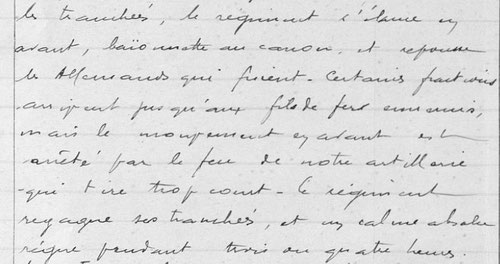 les tranchées, le régiment s'élance en
avant, baïonnette au canon, et repousse
les Allemands qui fuient - Certaines fractions
arrivent jusqu'aux fils de fers ennemis,
mais le mouvement en avant est
arrêté par le feu de notre artillerie
qui tire trop court - Le régiment
regagne ses tranchées, et un calme absolu
règne pendant trois ou quatre heures.